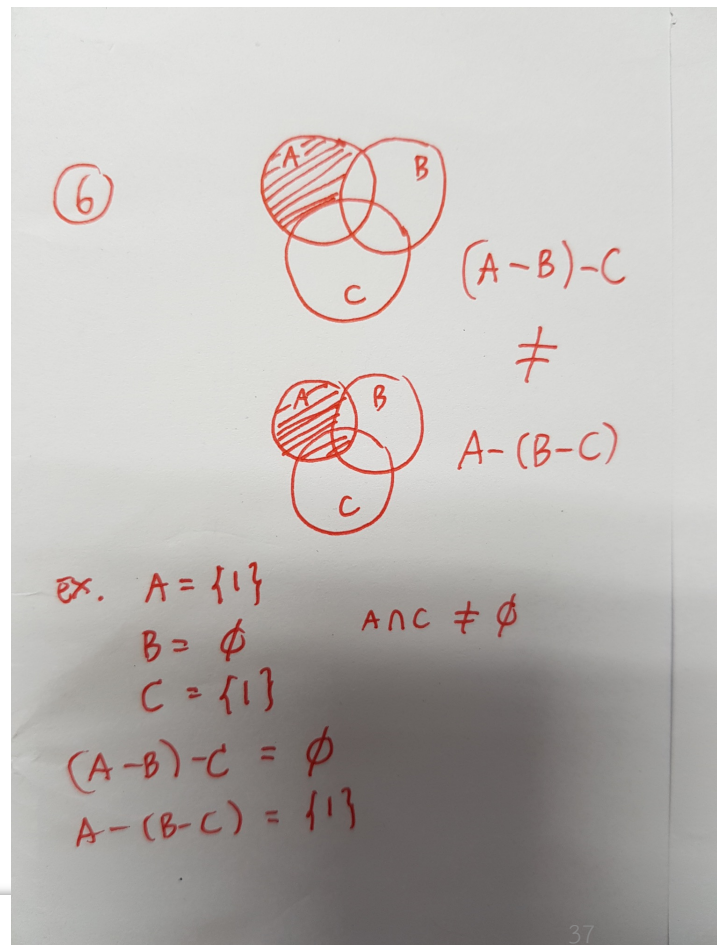 ⑥
A
B
C
(A-B)-C
≠
A
B
C
A-(B-C)
ex. A = {1}
B = ∅
A∩C ≠ ∅
C = {1}
(A-B)-C = ∅
A-(B-C) = {1}
37